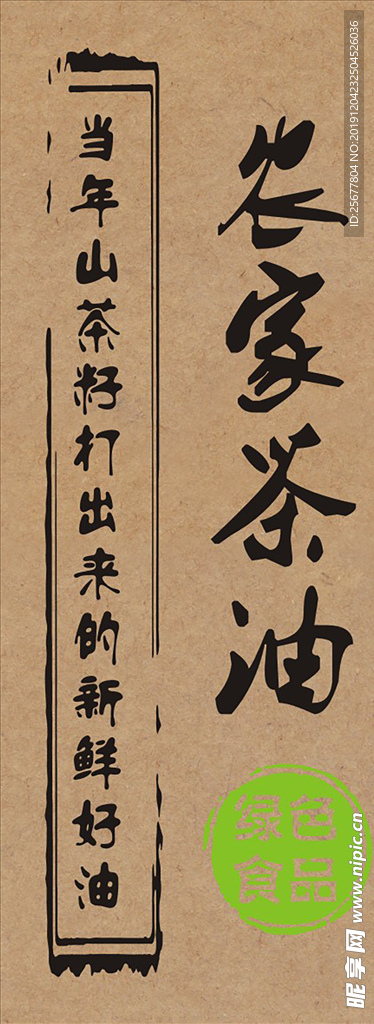 农家茶油
当年山茶籽打出来的新鲜好油
绿色
食品
ID:25677804 NO:20191204232504526036
昵享网 www.nipic.cn